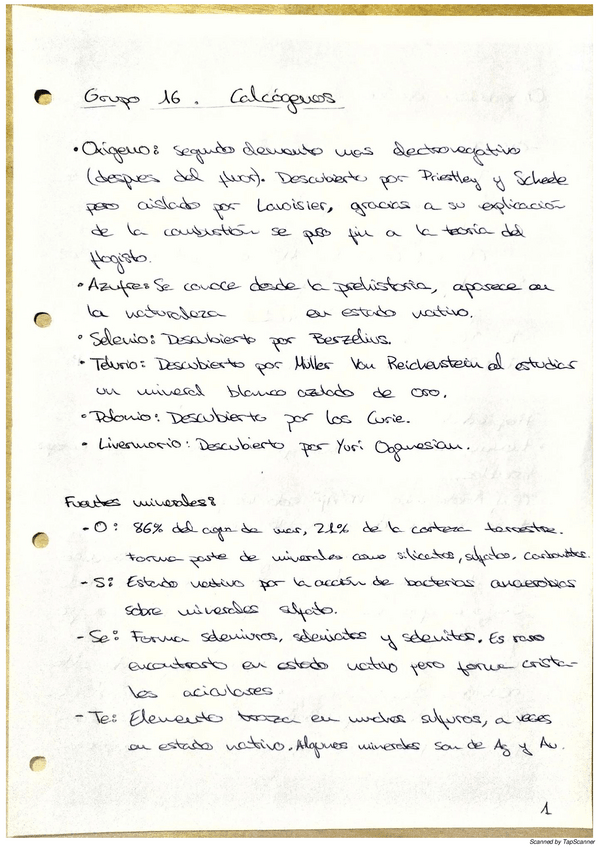 Grupo 16. Calcógenos
• Oxígeno: segundo elemento mas electronegativo
(despues del fluor). Descubierto por Priestley y Scheele
pero aislado por Lavoisier, gracias a su explicación
de la combustión se puso fin a la teoría del
flogisto.
• Azufre: Se conoce desde la prehistoria, aparece en
la naturaleza en estado nativo.
• Selenio: Descubierto por Berzelius.
• Telurio: Descubierto por Muller Von Reichenstein al estudiar
un mineral blanco azulado de oro.
• Polonio: Descubierto por los Curie.
• Livermorio: Descubierto por Yuri Oganesian.
Fuentes minerales:
- O: 86% del agua de mar, 21% de la corteza terrestre.
Forma parte de minerales como silicatos, sulfatos, carbonatos.
- S: Estado nativo por la acción de bacterias anaerobias
sobre minerales sulfato.
- Se: Forma seleniuros, seleniatos y selenitos. Es raro
encontrarlo en estado nativo pero forma crista-
les aciculares
- Te: Elemento traza en muchos sulfuros, a veces
en estado nativo. Algunos minerales son de Ag y Au.
1
Scanned by TapScanner